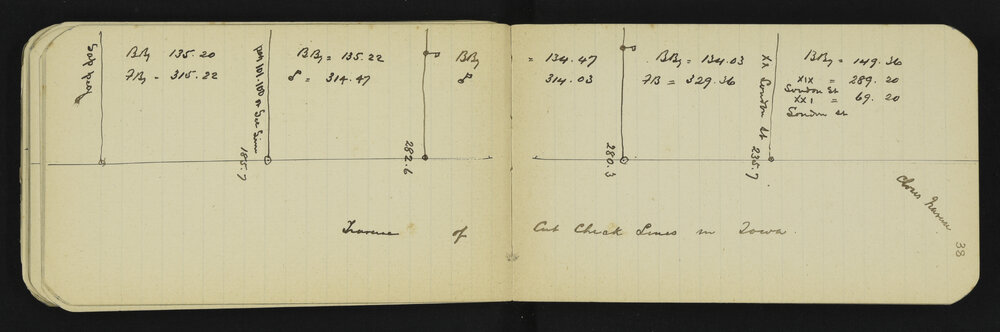 BBy 135.20
FBy = 315.22
185.7
BBy = 135.22
" = 314.47
282.6
BBy = 134.47
" 314.03
280.3
BBy = 134.03
FB = 329.36
XX London St
235.7
BBy = 149.36
XIX = 289.20
London St
XXI = 69.20
London St
Traverse of Cut Check Lines in Town.
38